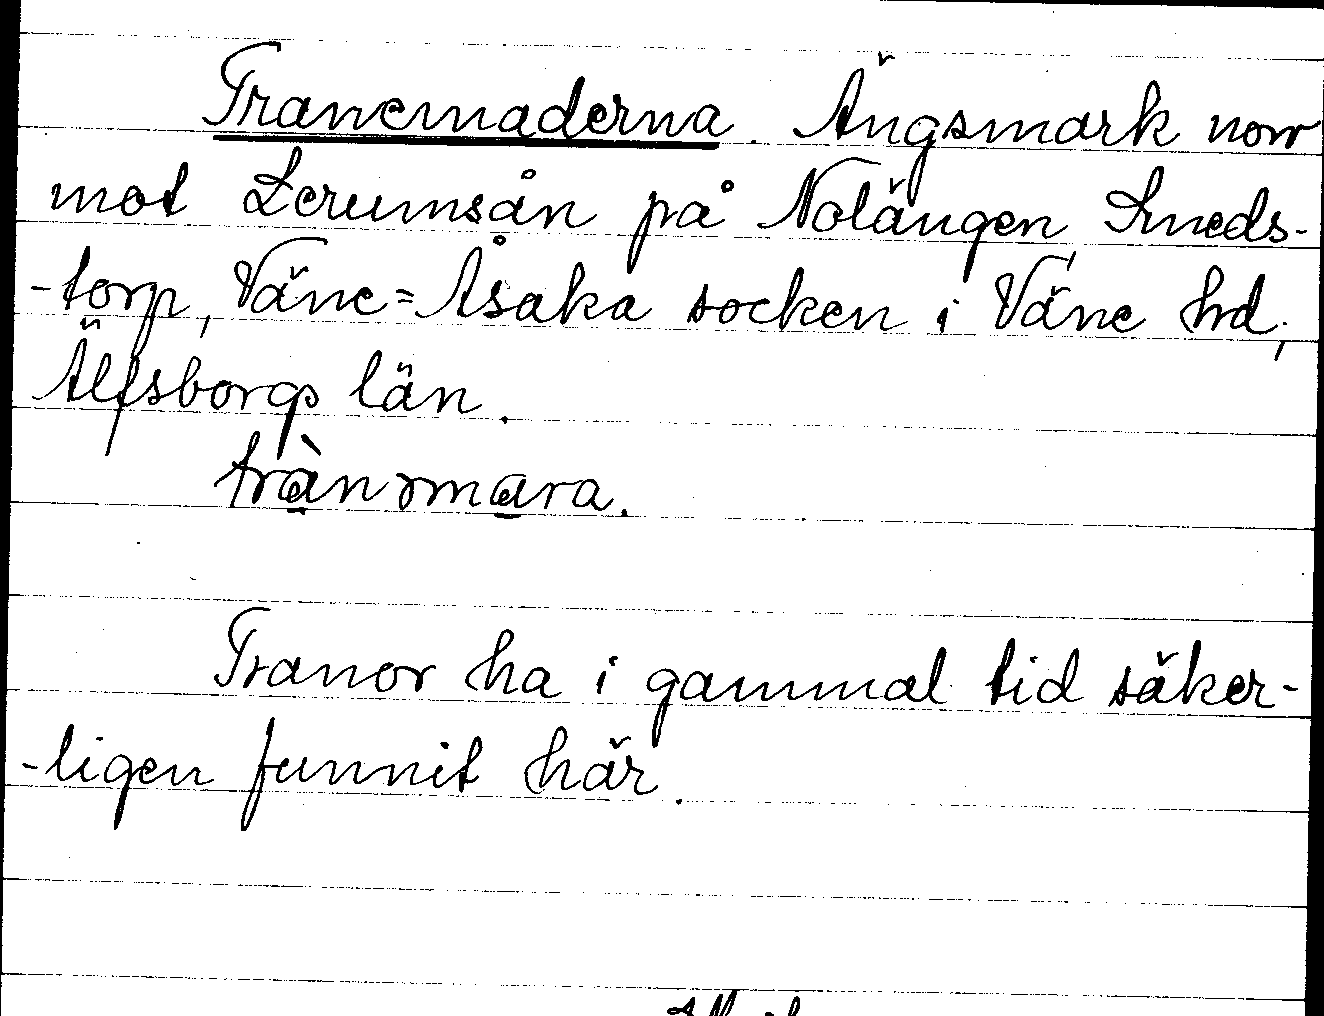 Tranemaderna. Ängsmark norr
mot Lerumsån på Nolängen, Smeds-
-torp, Väne=Åsaka socken i Väne hd,
Älfsborgs län.
trànɘmara.
Tranor ha i gammal tid säker-
-ligen funnit här.